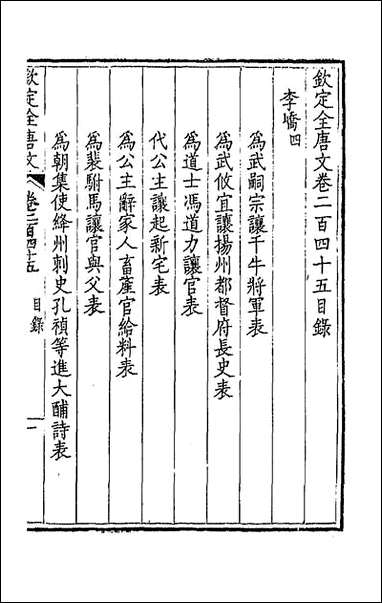 欽定全唐文卷二百四十五目錄
李嶠四
為武嗣宗讓千牛將軍表
為武攸宜讓揚州都督府長史表
為道士馮道力讓官表
代公主讓起新宅表
為公主辭家人畜產官給料表
為裴駙馬讓官與父表
為朝集使絳州刺史孔禎等進大酺詩表
欽定全唐文 卷二百四十五 目錄 一